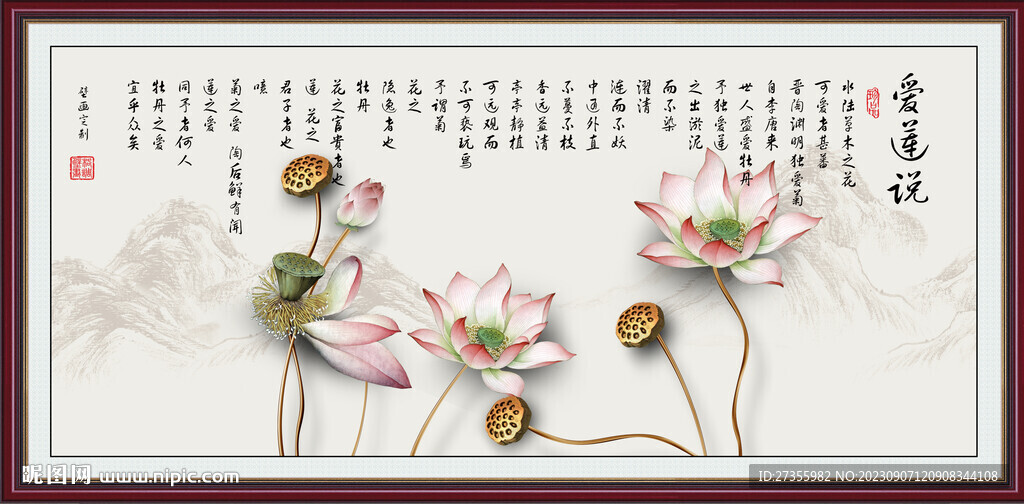 爱莲说
水陆草木之花
可爱者甚蕃
晋陶渊明独爱菊
自李唐来
世人盛爱牡丹
予独爱莲
之出淤泥
而不染
濯清
涟而不妖
中通外直
不蔓不枝
香远益清
亭亭静植
可远观而
不可亵玩焉
予谓菊
花之
隐逸者也
牡丹
花之富贵者也
莲 花之
君子者也
噫
菊之爱 陶后鲜有闻
莲之爱
同予者何人
牡丹之爱
宜乎众矣
壁画定制
昵图网 www.nipic.com
ID:27355982 NO:20230907120908344108